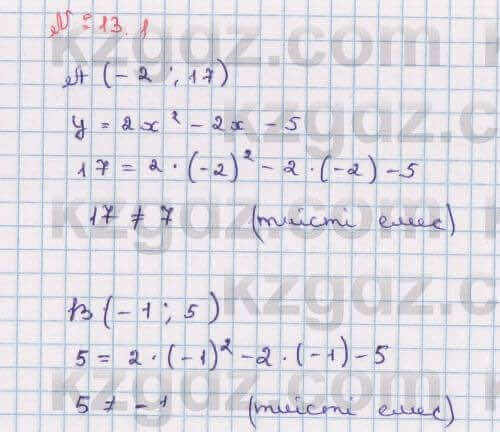 № 13.1
A (-2 ; 17)
y = 2x² - 2x - 5
17 = 2 · (-2)² - 2 · (-2) - 5
17 ≠ 7 (тиісті емес)
B (-1 ; 5)
5 = 2 · (-1)² - 2 · (-1) - 5
5 ≠ -1 (тиісті емес)
kzgdz.com